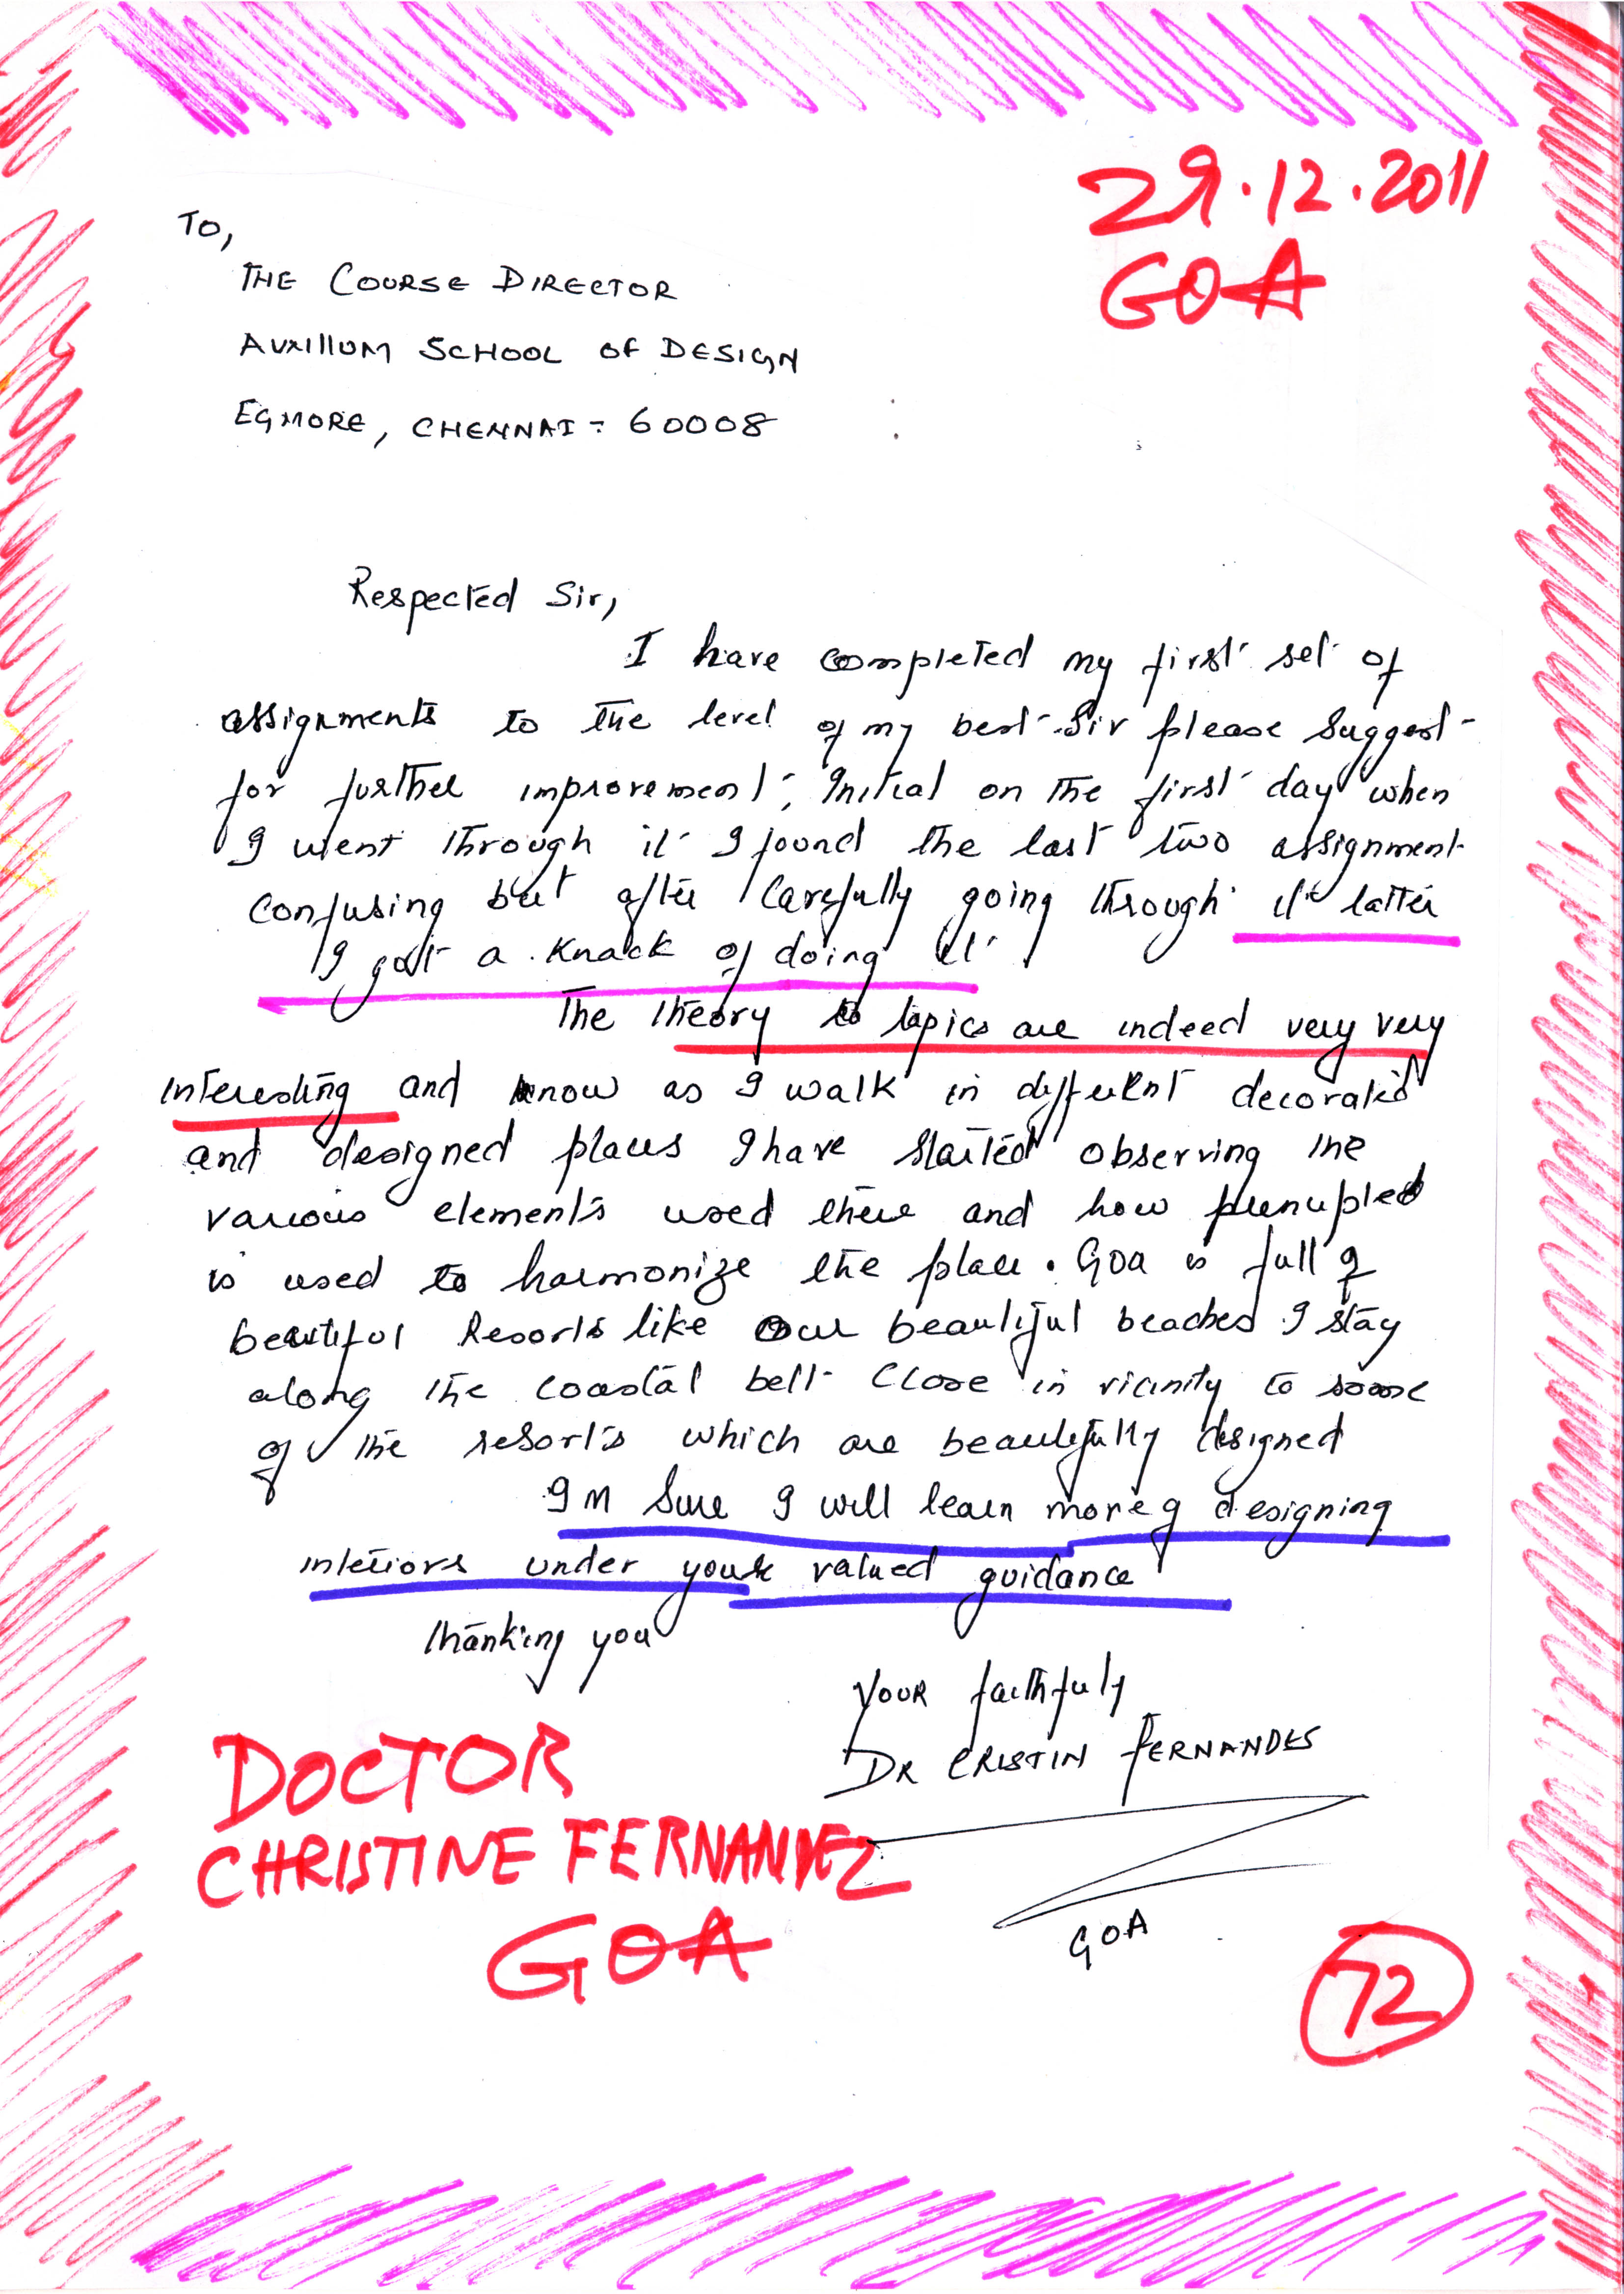 29.12.2011
GOA
To,
THE COURSE DIRECTOR
AUXILIUM SCHOOL OF DESIGN
EGMORE, CHENNAI - 60008
Respected Sir,
I have completed my first set of
assignments to the level of my best. Sir please suggest
for further improvement. Initial on the first day when
I went through it I found the last two assignment
confusing but after carefully going through it latter
I got a knack of doing it.
The theory topics are indeed very very
interesting and know as I walk in different decorated
and designed places I have started observing the
various elements used there and how principled
is used to harmonize the place. Goa is full of
beautiful Resorts like our beautiful beaches I stay
along the coastal belt close in vicinity to some
of the resorts which are beautifully designed
I M Sure I will learn more of designing
interiors under your valued guidance
Thanking you
Your faithfuly
DR CRISTIN FERNANDES
GOA
DOCTOR
CHRISTINE FERNANDEZ
GOA
72